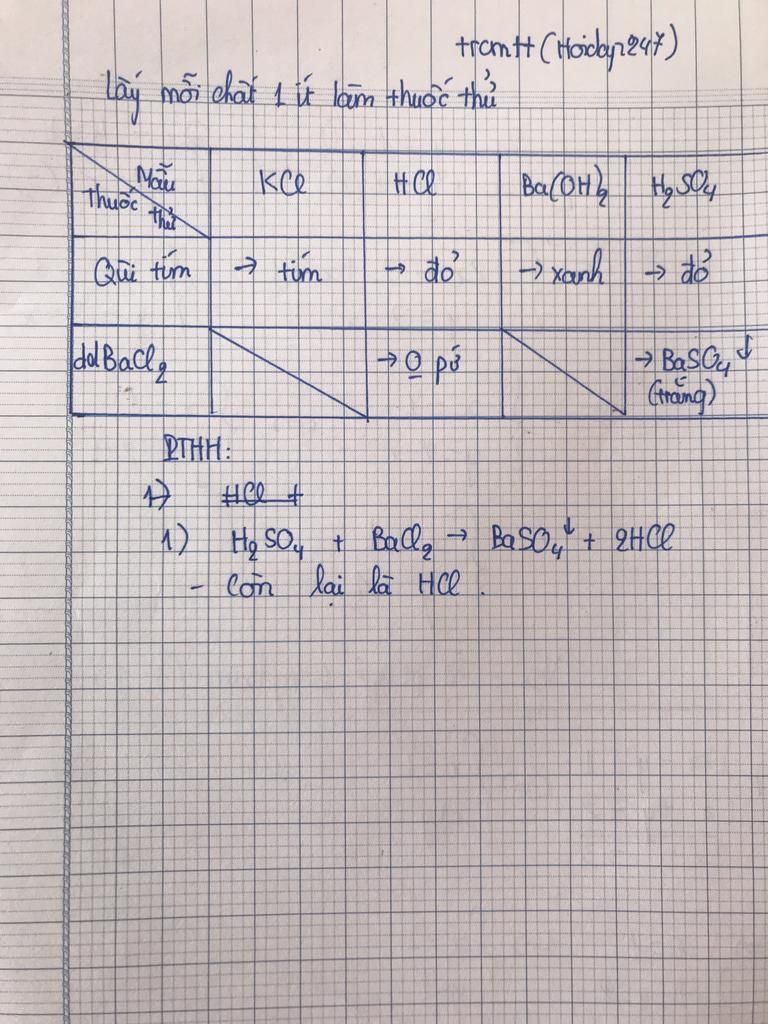 trcmtt (Hoidap247)
Lấy mỗi chất 1 ít làm thuốc thử
Mẫu
Thuốc thử
KCl
HCl
Ba(OH)₂
H₂SO₄
Qùi tím
→ tím
→ đỏ
→ xanh
→ đỏ
ddBaCl₂
→ O pứ
→ BaSO₄↓
(trắng)
PTHH:
1)
HCl +
1) H₂SO₄ + BaCl₂ → BaSO₄↓ + 2HCl
- Còn lại là HCl.